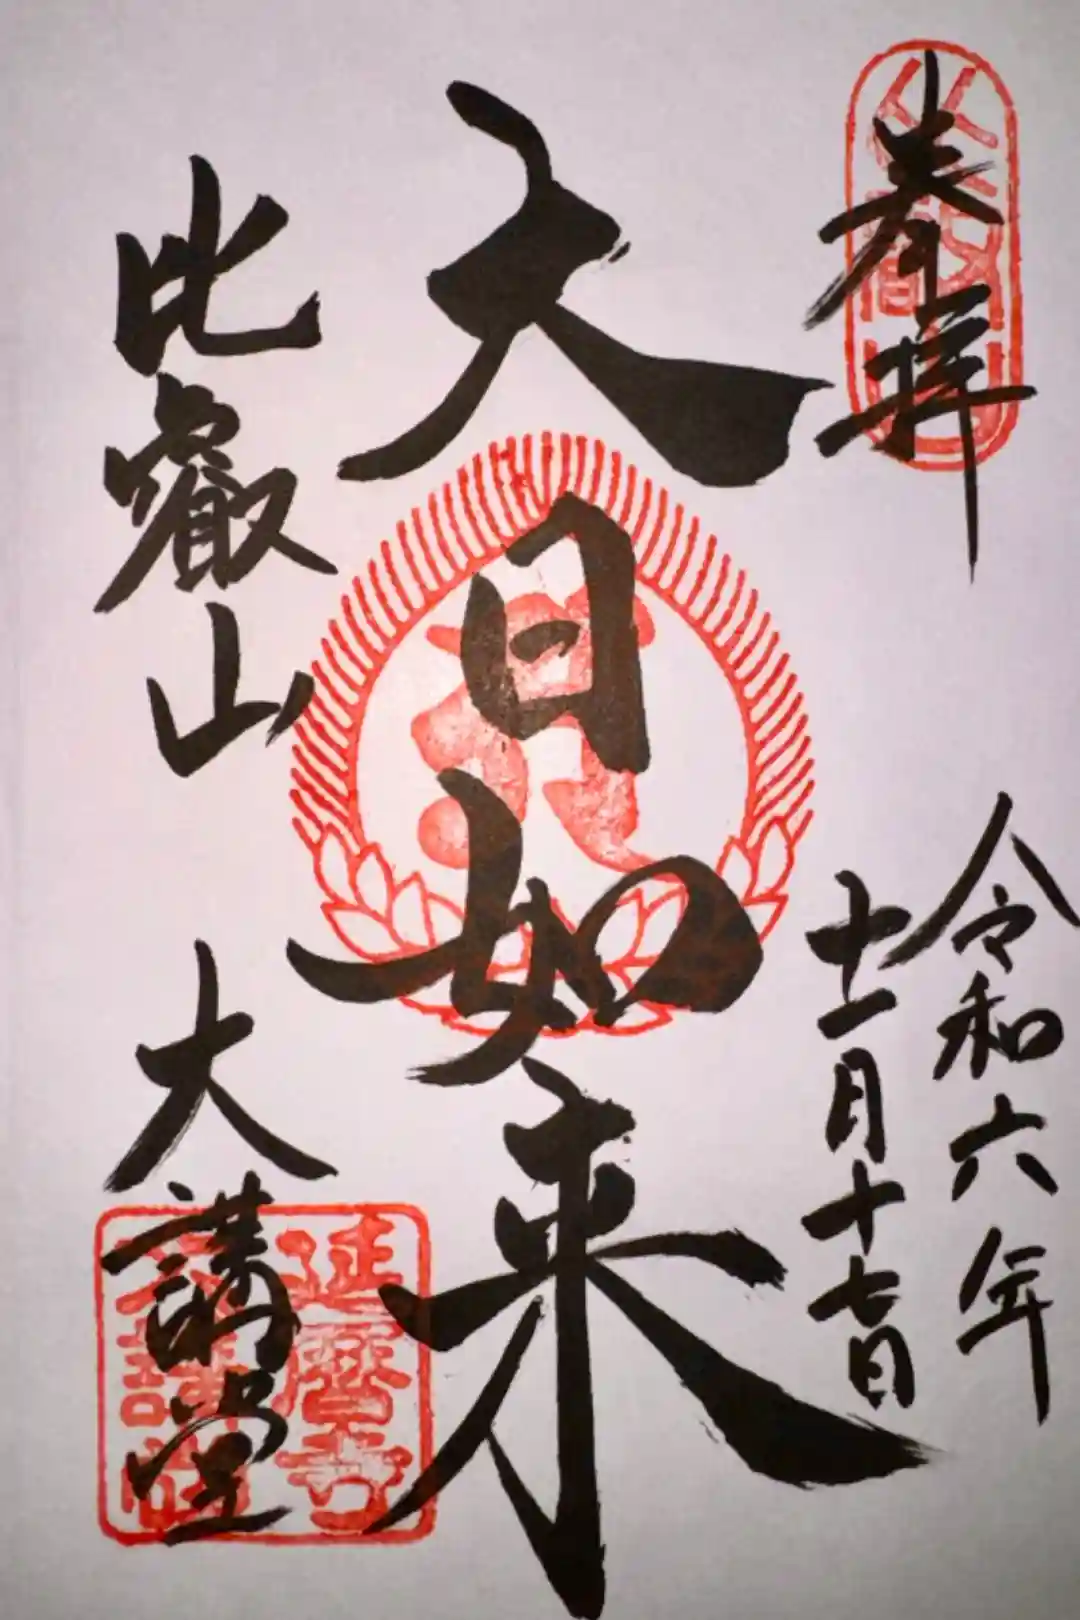 奉拝
令和六年
十一月十七日
大日如来
比叡山
大講堂
延暦寺
大講堂